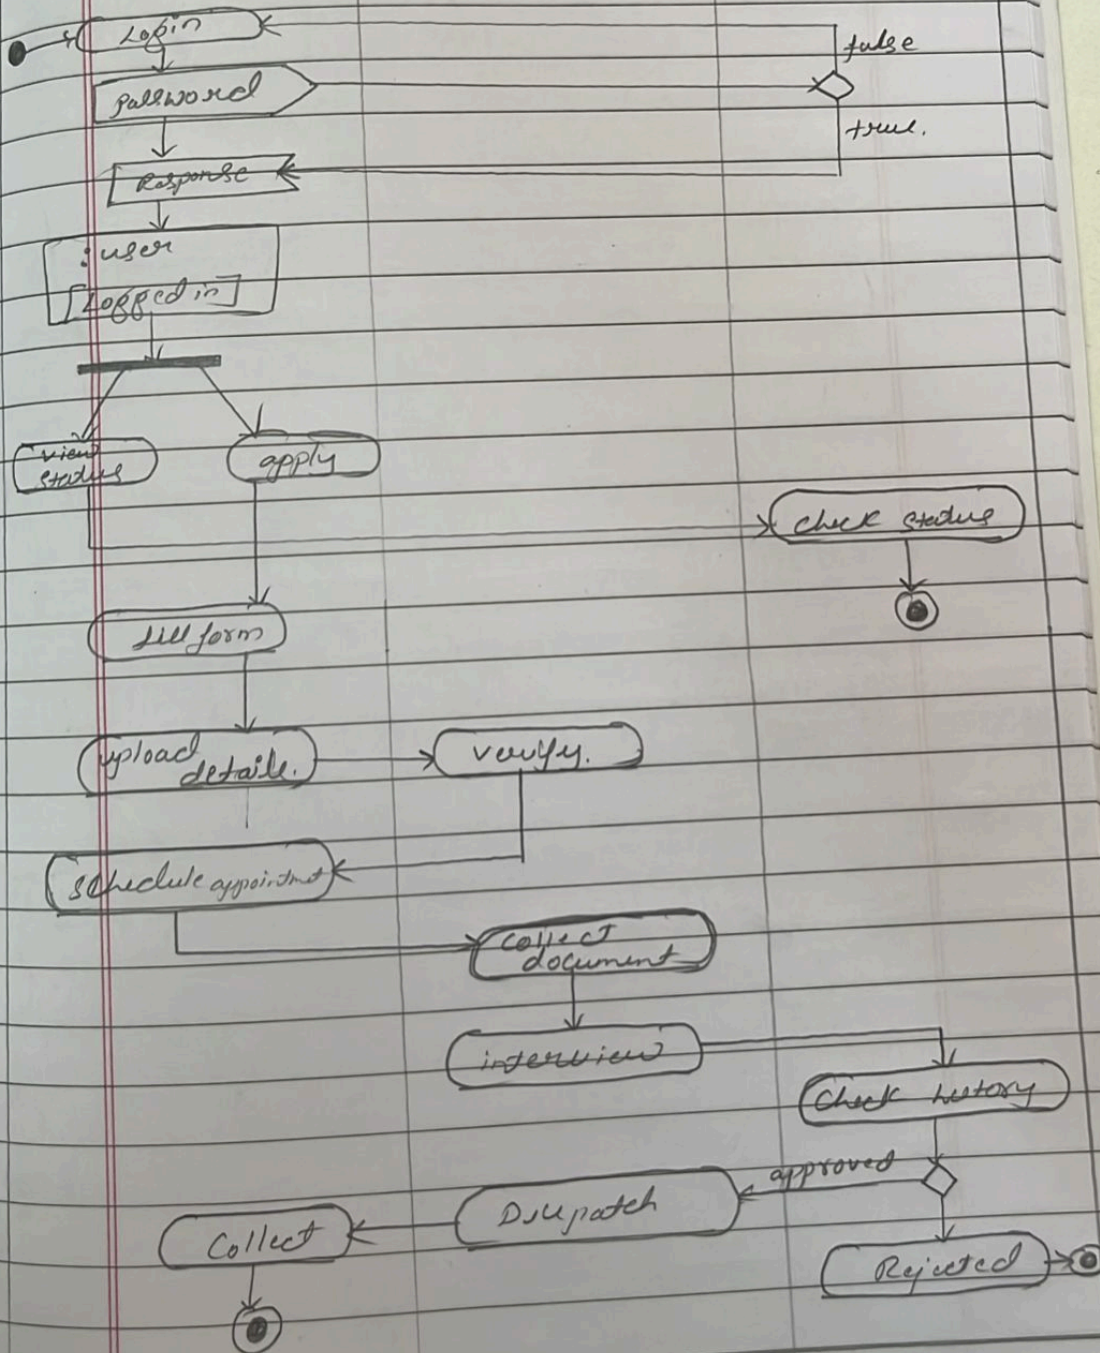 Login
false
password
true.
Response
: user
[Logged in]
view
status
apply
check status
fill form
upload
details.
verify.
schedule appointmet
collect
document
interview
check history
approved
Dispatch
Collect
Rejected